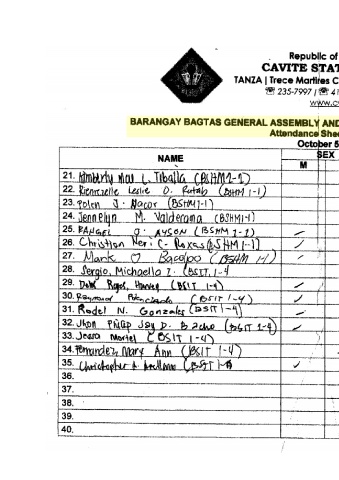 Republic of
CAVITE STAT
TANZA | Trece Martires C
☏ 235-7997 | ☏ 41
www.c
BARANGAY BAGTAS GENERAL ASSEMBLY AND
Attendance Shee
October 5
NAME SEX
M
21. Kimberly Mae L. (BSHM 1-1)
22. Leslie D. (BSHM 1-1)
23. J. (BSHM 1-1)
24. Jennelyn M. Valderama (BSHM 1-1)
25. RANGEL AYSON (BSHM 1-1)
26. Christian Neri C. Roxas (BSHM 1-1)
27. Mark (BSHM 1-1)
28. Sergio, Michaella I. (BSIT 1-4
29. Reyes, (BSIT 1-4)
30. Raymond (BSIT 1-4)
31. Rodel N. Gonzales (BSIT 1-4)
32. Jhon Philip Jay D. (BSIT 1-4)
33. (BSIT 1-4)
34. Fernandez, Mary Ann (BSIT 1-4)
35. Christopher (BSIT 1-4)
36.
37.
38.
39.
40.